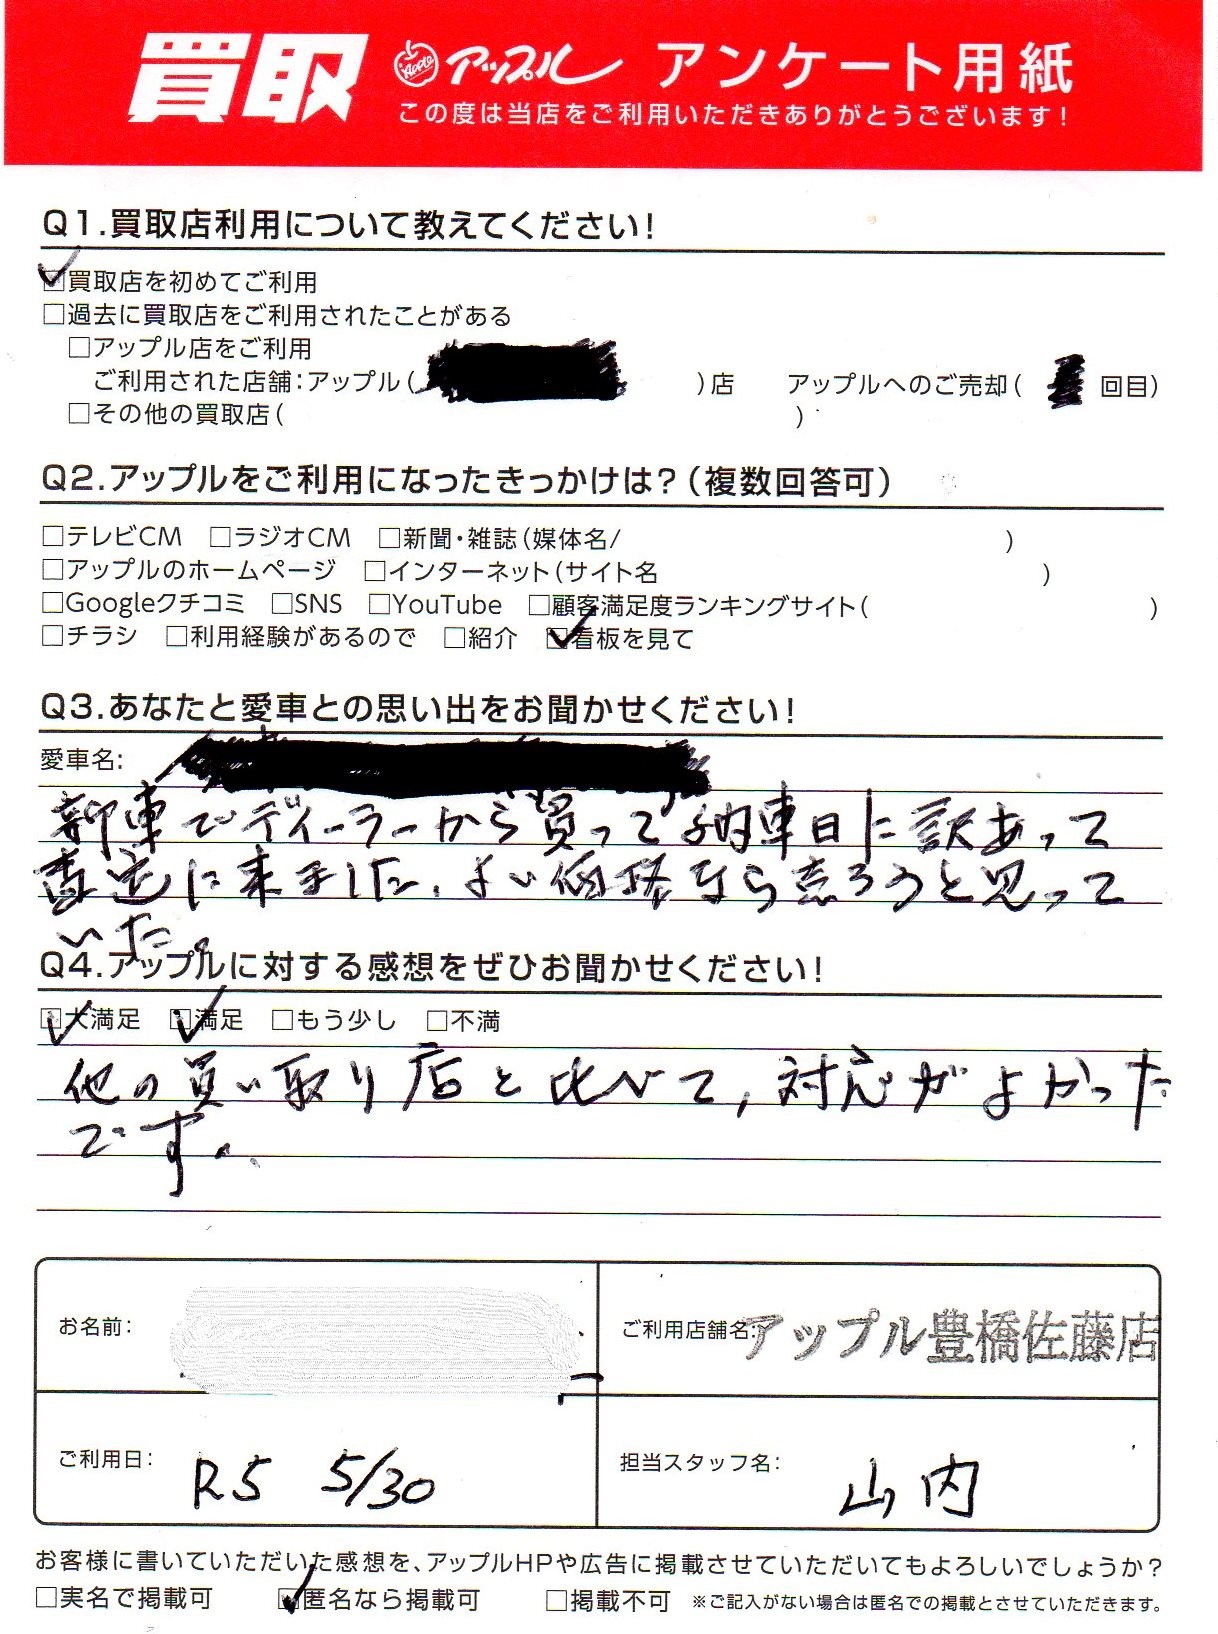 買取 Apple アップル アンケート用紙
この度は当店をご利用いただきありがとうございます!
Q1.買取店利用について教えてください!
☑買取店を初めてご利用
□過去に買取店をご利用されたことがある
□アップル店をご利用
ご利用された店舗:アップル( )店 アップルへのご売却( 回目)
□その他の買取店( )
Q2.アップルをご利用になったきっかけは?(複数回答可)
□テレビCM □ラジオCM □新聞・雑誌(媒体名/ )
□アップルのホームページ □インターネット(サイト名 )
□Googleクチコミ □SNS □YouTube □顧客満足度ランキングサイト( )
□チラシ □利用経験があるので □紹介 ☑看板を見て
Q3.あなたと愛車との思い出をお聞かせください!
愛車名:
新車でディーラーから買って納車日に訳あって
直近に来ました、よい価格なら売ろうと思って
いた。
Q4.アップルに対する感想をぜひお聞かせください!
☑大満足 ☑満足 □もう少し □不満
他の買い取り店と比べて,対応がよかった
です。
お名前:
ご利用店舗名:アップル豊橋佐藤店
ご利用日: R5 5/30
担当スタッフ名: 山内
お客様に書いていただいた感想を、アップルHPや広告に掲載させていただいてもよろしいでしょうか?
□実名で掲載可 ☑匿名なら掲載可 □掲載不可 ※ご記入がない場合は匿名での掲載とさせていただきます。